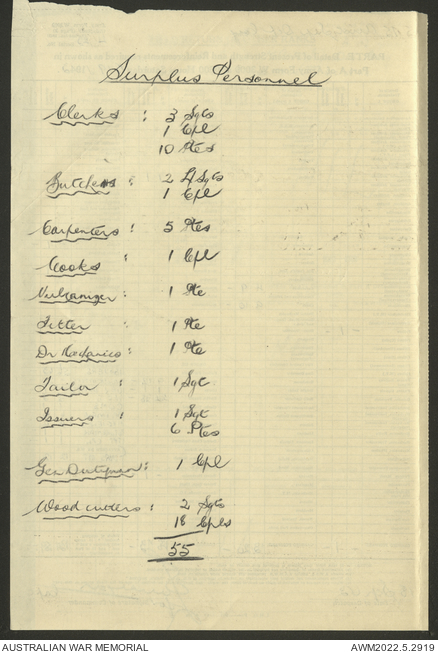 Surplus Personnel
Clerks : 3 Sgts
1 Cpl
10 Ptes
Butchers : 2 L/Sgts
1 Cpl
Carpenters : 5 Ptes
Cooks 1 Cpl
Vulcaniger : 1 Pte
Fitter : 1 Pte
Dr Mechanics : 1 Pte
Tailor : 1 Sgt
Issuers : 1 Sgt
6 Ptes
Gen Dutyman : 1 Cpl
Wood cutters : 2 Sgts
18 Cpls
55
AUSTRALIAN WAR MEMORIAL
AWM2022.5.2919